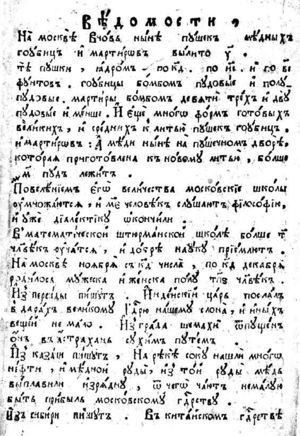 Вѣдомости,
На москвѣ вновь нынѣ пушекъ мѣдныхъ
гоубицъ и мартировъ вылито у҃.
тѣ пушки, ядромъ по кд҃. по иі҃. и по ві҃
фунтовъ. гоубицы бомбомъ пудовые и полу-
пудовые. мартиры бомбомъ девяти трехъ и дву
пудовые и менше. И еще много формъ готовыхъ
великихъ, и среднихъ к литью пушекъ гоубицъ.
и мартировъ: А мѣди нынѣ на пушечномъ дворѣ,
которая приготовлена къ новому литью, болше
м҃ пудъ лежитъ.
Повелѣніемъ его величества московские школы
оумножаются, и м҃е человѣкъ слушаютъ філософію,
и уже діалектіку окончили.
Въ математической штюрманской школѣ болше т҃
человѣкъ оучатся, и добрѣ науку пріемлютъ.
На москвѣ ноября съ кд҃ числа, по кд҃ декабря
родилося мужеска и женска полу тп҃ѕ человѣкъ.
Из персиды пишутъ. Индейскій царь послалъ
в дарахъ великому Гдрю нашему слона, и иныхъ
вещей не мало. Из града шемахи ѿпущенъ
онъ въ астрахань сухимъ путемъ.
Из казани пишутъ, На рекѣ соку нашли много
нефти, и мѣдной руды, из той руды мѣдь
выплавили изрядну, ѿ чего чаютъ немалую
быть прибыль московскому гдрству.
Из сибири пишутъ. Въ китайскомъ гдрствѣ